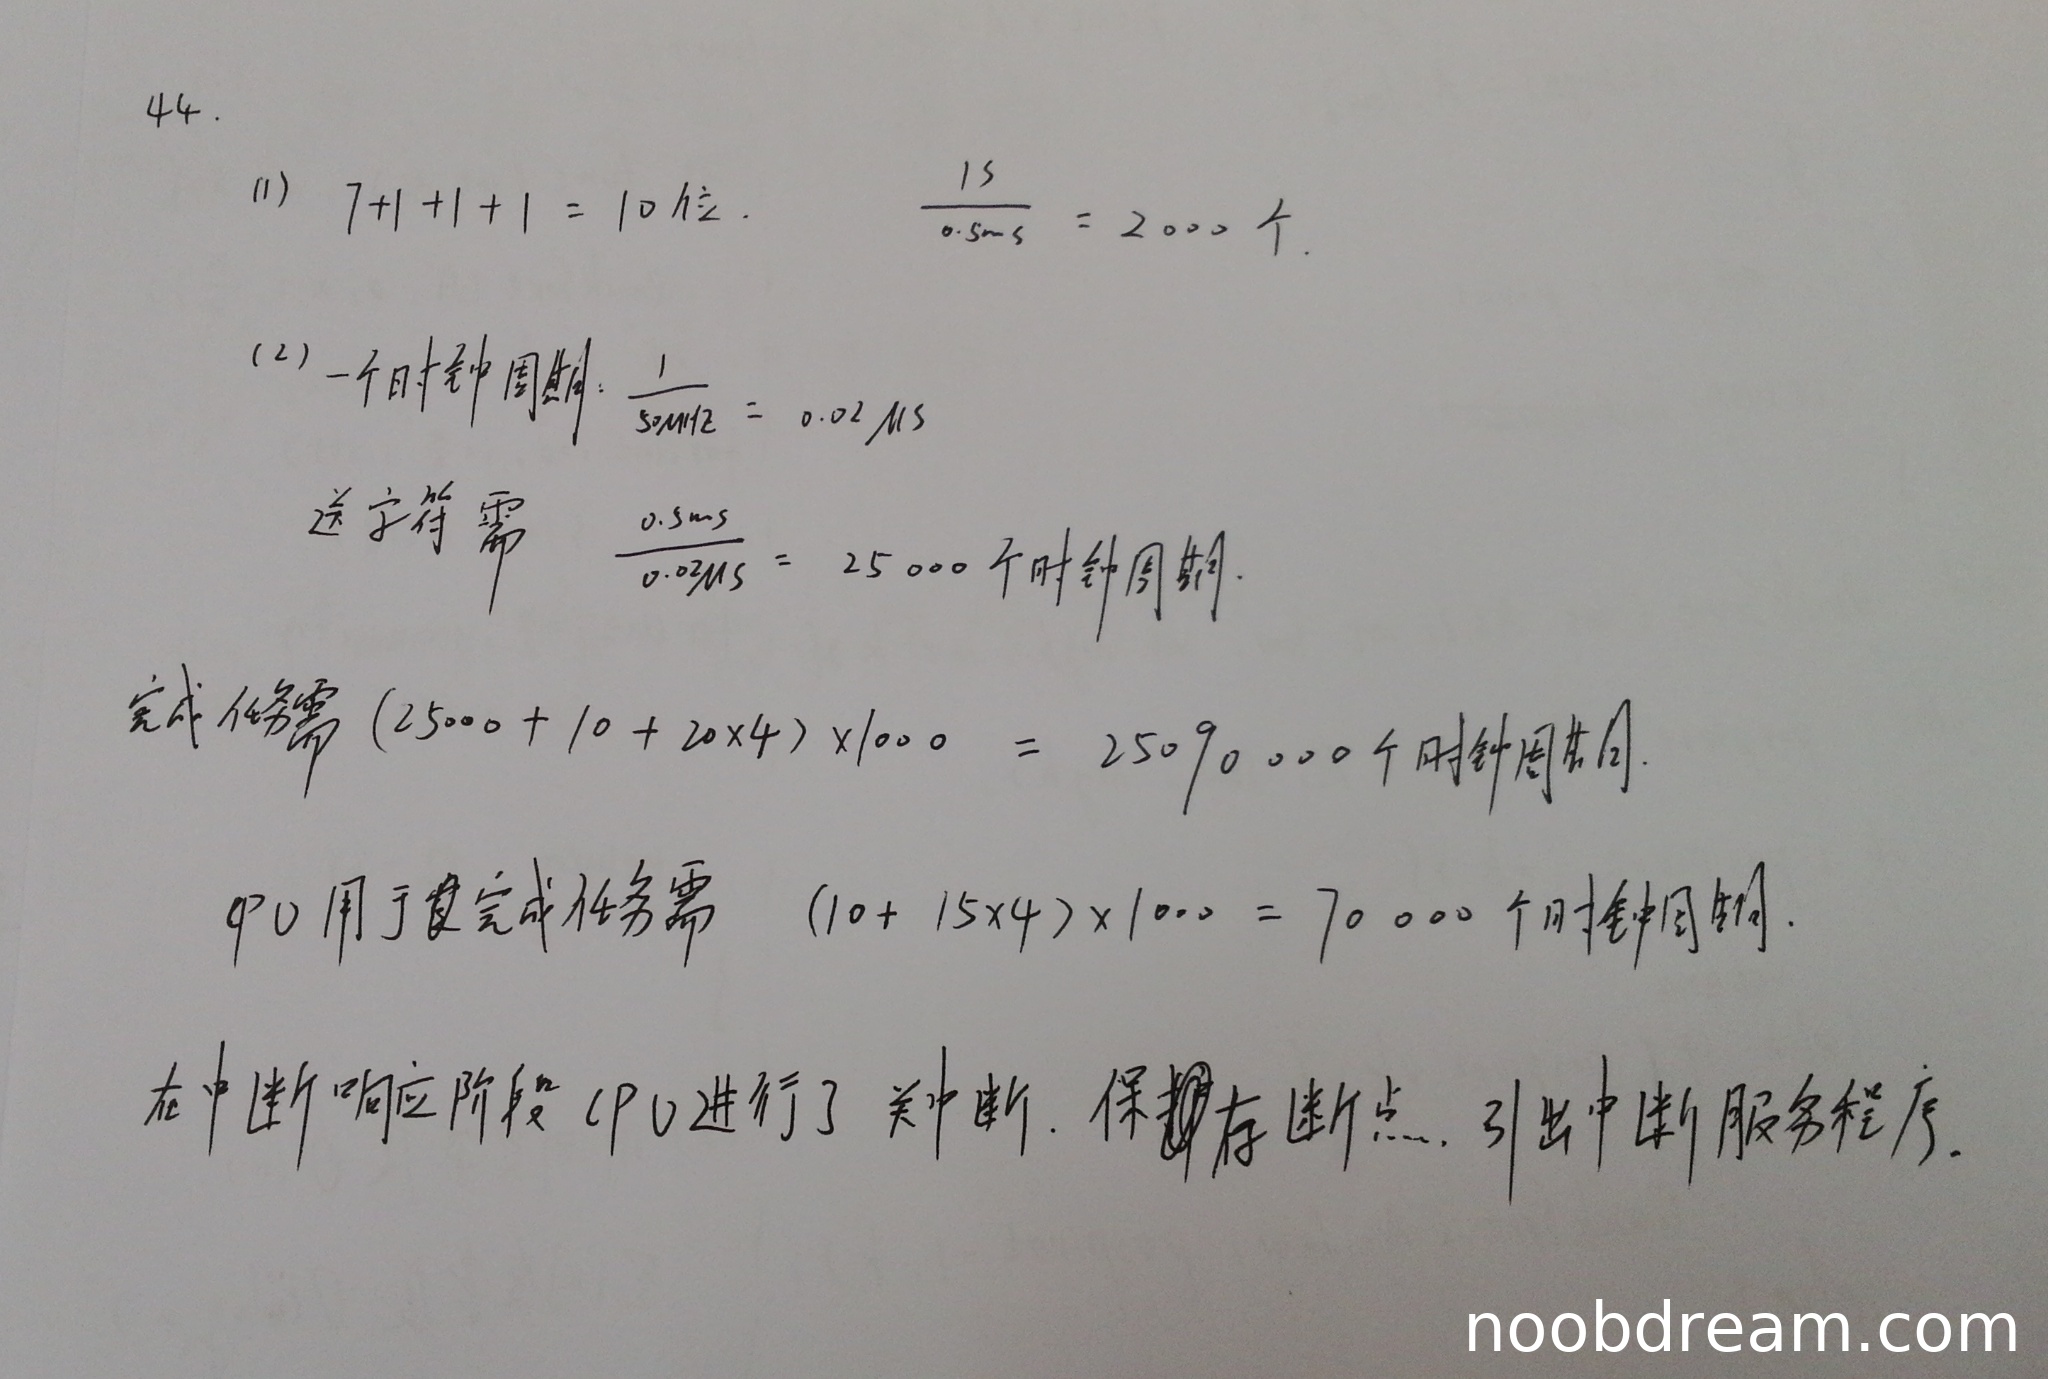 44.
(1) 7+1+1+1 = 10位. 1s/0.5ms = 2000个.
(2) 一个时钟周期: 1/50MHZ = 0.02μs
送字符需 0.5ms/0.02μs = 25000个时钟周期.
完成任务需 (25000+10+20×4)×1000 = 25090000个时钟周期.
CPU用于完成任务需 (10+15×4)×1000 = 70000个时钟周期.
在中断响应阶段CPU进行了关中断.保存断点.引出中断服务程序.
noobdream.com